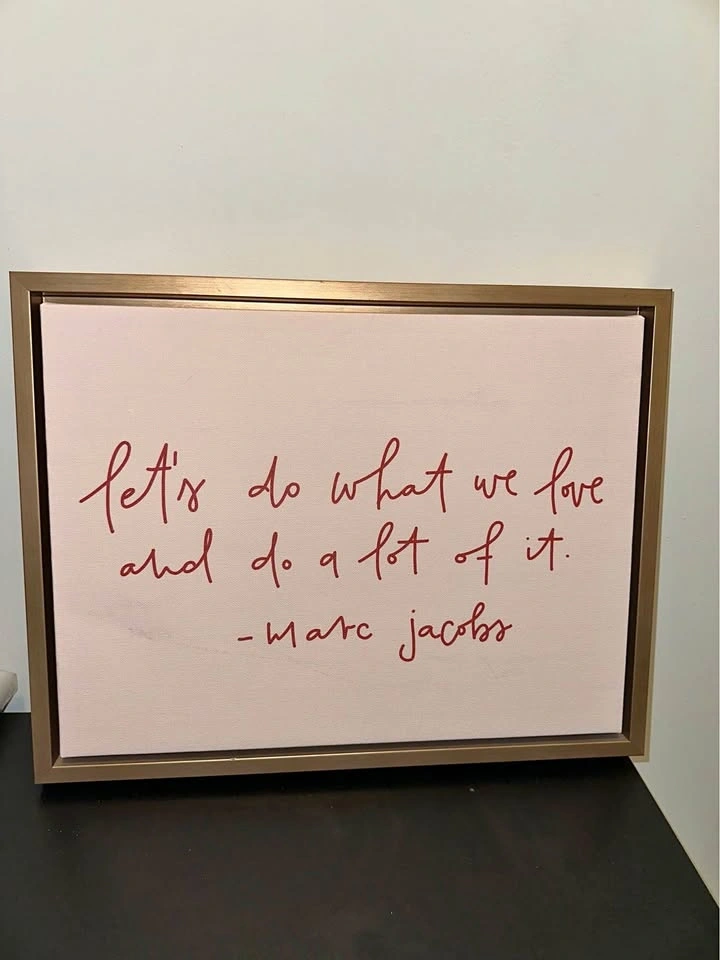 let's do what we love
and do a lot of it.
-marc jacobs